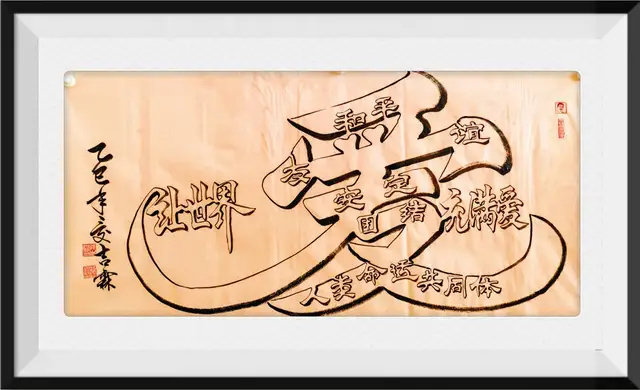 愛
和平
友谊
安定
团结
让世界 充满爱
人类命运共同体
乙巳年 吉霖